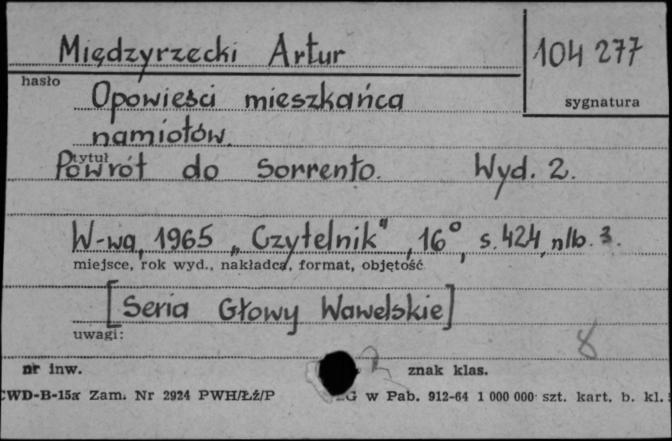 Międzyrzecki Artur
104 277
hasło
sygnatura
Opowieści mieszkańca
namiotów.
tytuł
Powrót do Sorrento. Wyd. 2.
W-wa, 1965 „Czytelnik", 16°, s. 424, nlb. 3.
miejsce, rok wyd., nakładca, format, objętość
[Seria Głowy Wawelskie]
uwagi:
8
nr inw.
2
znak klas.
CWD-B-15a Zam. Nr 2924 PWH/Łź/P ZG w Pab. 912-64 1 000 000 szt. kart. b. kl.